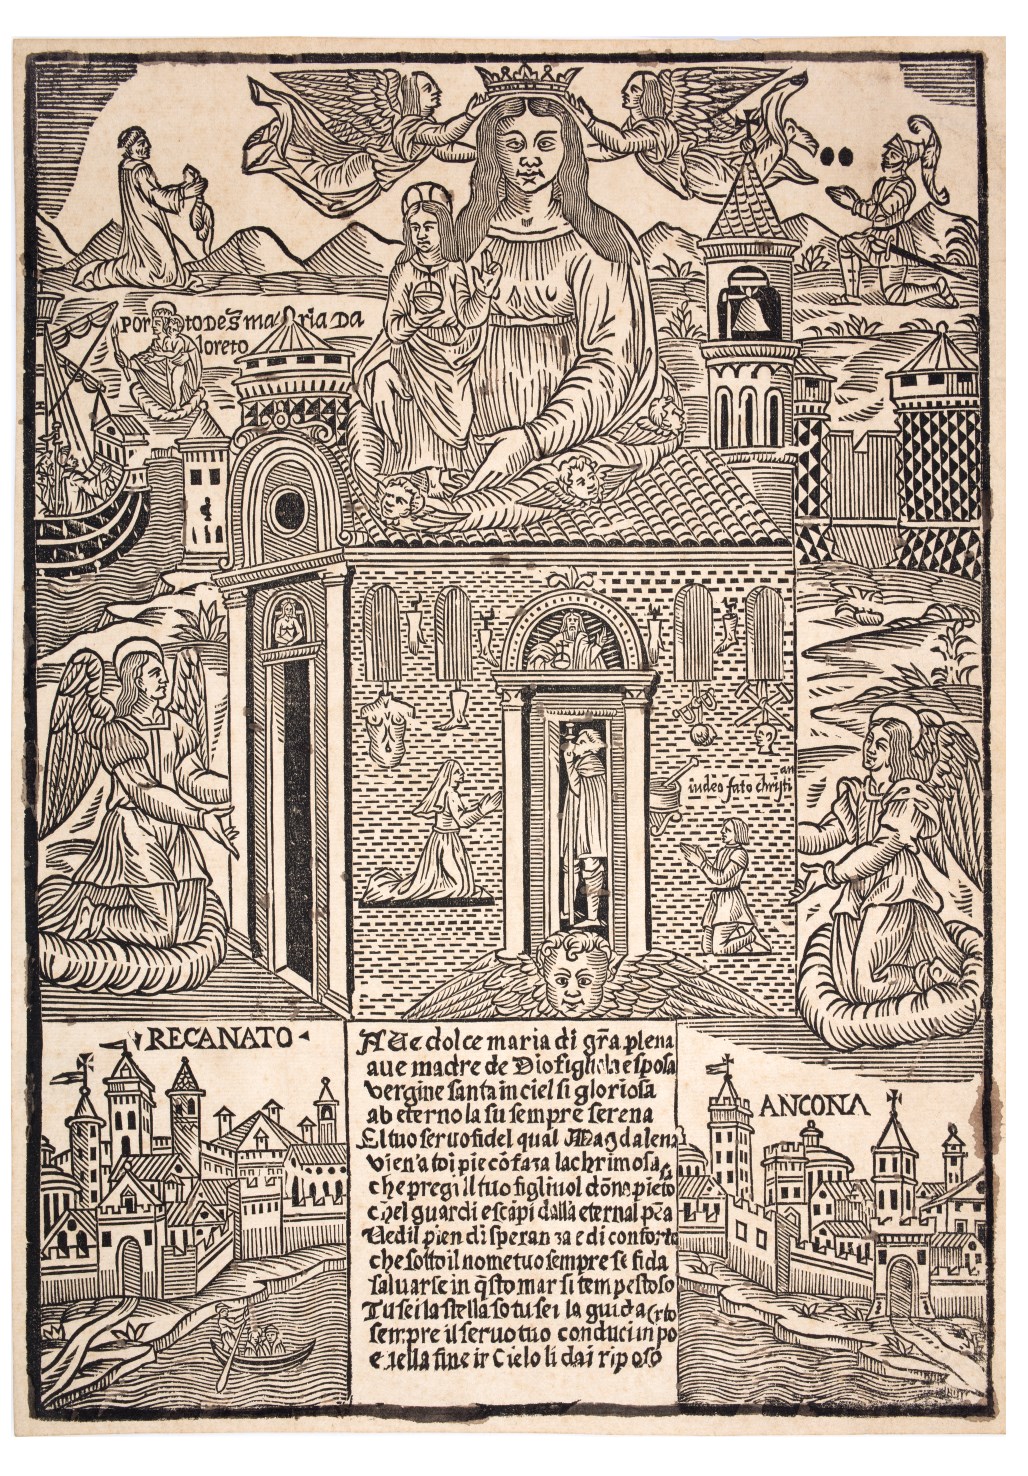 PORTO DE S̄ MARIA DA
loreto
an
iudeo fato christi
RECANATO
AVe dolce maria di gr̄a plena
aue madre de Dio figliola e sposa
vergine santa in ciel si gloriosa
ab eterno la su sempre serena
El tuo seruo fidel qual Magdalena
vien a toi pie cō faza lachrimosa
che pregi il tuo figliuol
ch̄el guardi e scāpi dalla eternal pēa
Vedil pien di speranza e di conforto
che sotto il nome tuo sempre se fida
saluarse in q̄sto mar si tempestoso
Tu sei la stella so tu sei la guida
sempre il seruo tuo conduci in po
rto
e nella fine in Cielo li dai riposo
ANCONA